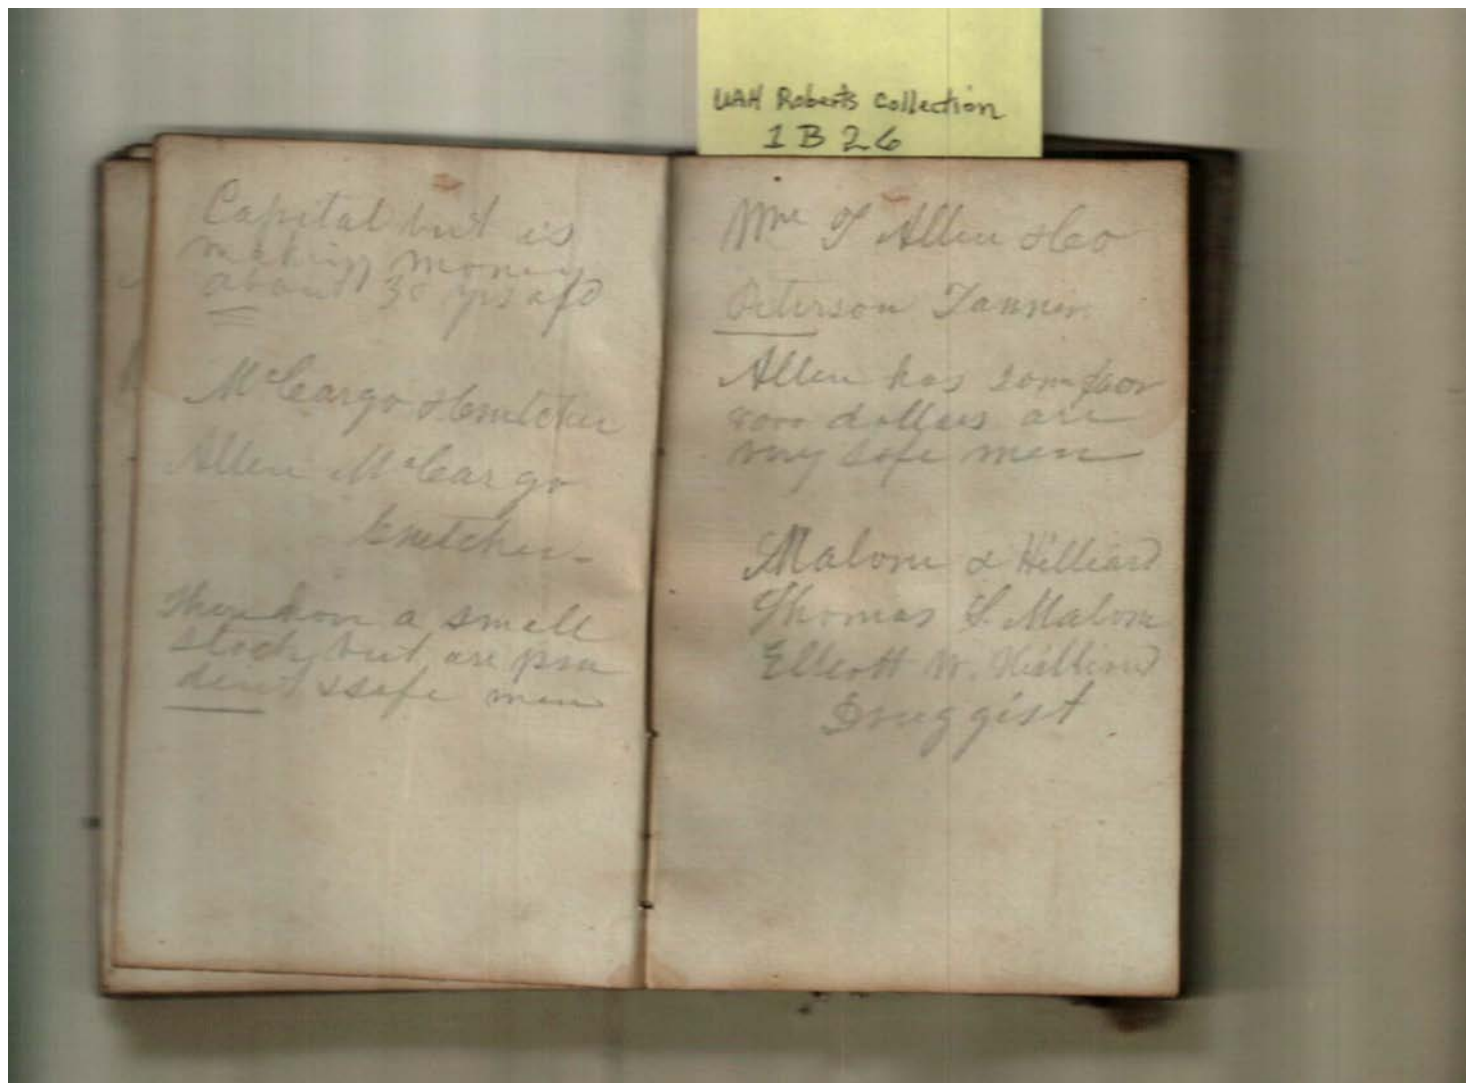 UAH Roberts Collection
1 B 26
Capital but is
making money
about 30 yrs of
McCargo &
Allen McCargo
They have a small
stock but are pru
dent & safe men
Wm T Allen & Co
Peterson Tanner
Allen has some
dollars are
very safe men
Malone & Hilliard
Thomas S. Malone
Ellcott W. Hilliard
Druggist